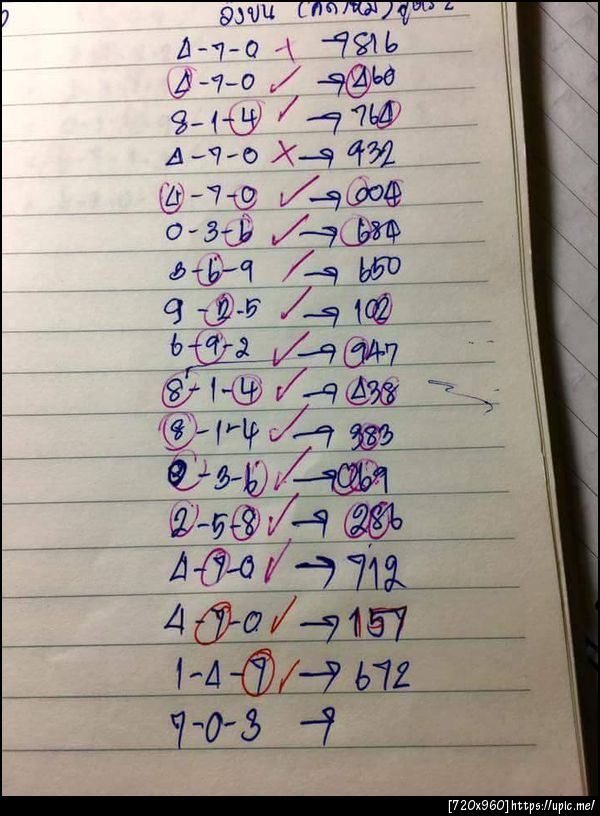 สูตร 2
4-7-0 × → 7816
4-7-0 ✓ → 460
8-1-4 ✓ → 764
4-7-0 × → 932
4-7-0 ✓ → 004
0-3-6 ✓ → 684
3-6-9 ✓ → 650
9-2-5 ✓ → 102
6-9-2 ✓ → 947
8-1-4 ✓ → 438
8-1-4 ✓ → 383
0-3-6 ✓ → 069
2-5-8 ✓ → 286
4-7-0 ✓ → 712
4-7-0 ✓ → 157
1-4-7 ✓ → 672
7-0-3 →
[720x960]https://upic.me/